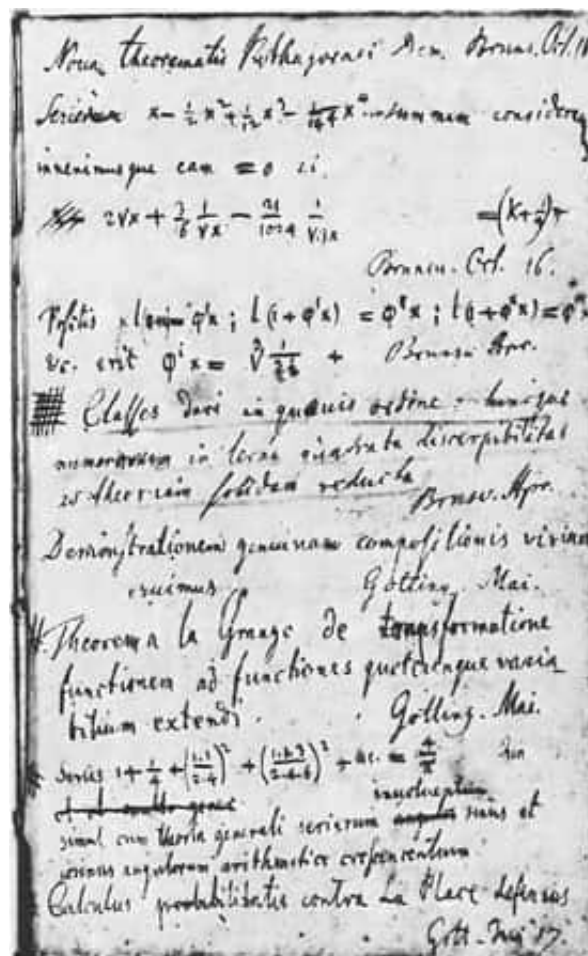 Nova theorematis Pythagoraei Dem. Brunsv. Oct. 16
Serierum x − 1/2 x² + 1/12 x³ − 1/144 x⁴ ... summam considera
invenimusque eam = 0 si
2√x + 3/16 1/√x − 21/1024 1/√x³x = (k+1/4)π
Brunsv. Oct. 16.
Positis l(1+x) = φ'x ; l(1+φ'x) = φ''x ; l(1+φ''x) = φ'''x
&c. erit φⁱx = ∛1/½i + Brunsv. Apr.
Classes dari in quovis ordine ; hincque
numerorum in terna quadrata discerpibilitas
ad theoriam solidam reducta
Brunsv. Apr.
Demonstrationem genuinam compositionis virium
eruimus Götting. Mai.
Theorema la Grange de transformatione
functionem ad functiones quotcunque varia
bilium extendi. Götting. Mai.
Series 1 + 1/4 + (1.1/2.4)² + (1.1.3/2.4.6)² + &c. = 4/π
simul cum theoria generali serierum involventium sinus et
cosinus angulorum arithmetice crescentium
Calculus probabilitatis contra La Place defensus
Gott. Jun. 17.